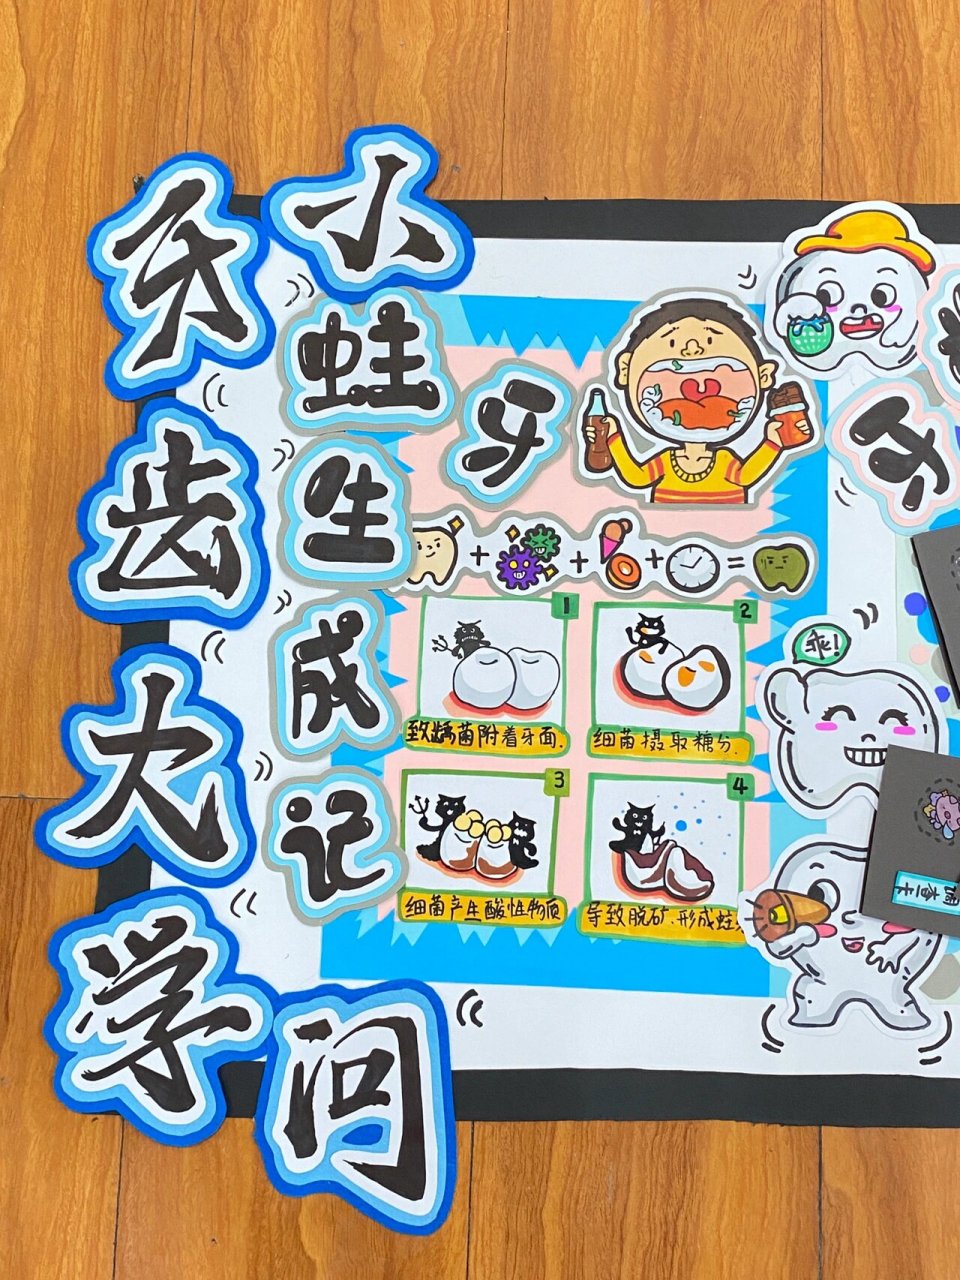 小牙齿大学问
蛀牙生成记
牙
+ + + =
1
致龋菌附着牙面.
2
细菌摄取糖分.
3
细菌产生酸性物质
4
导致脱矿.形成蛀
乖!